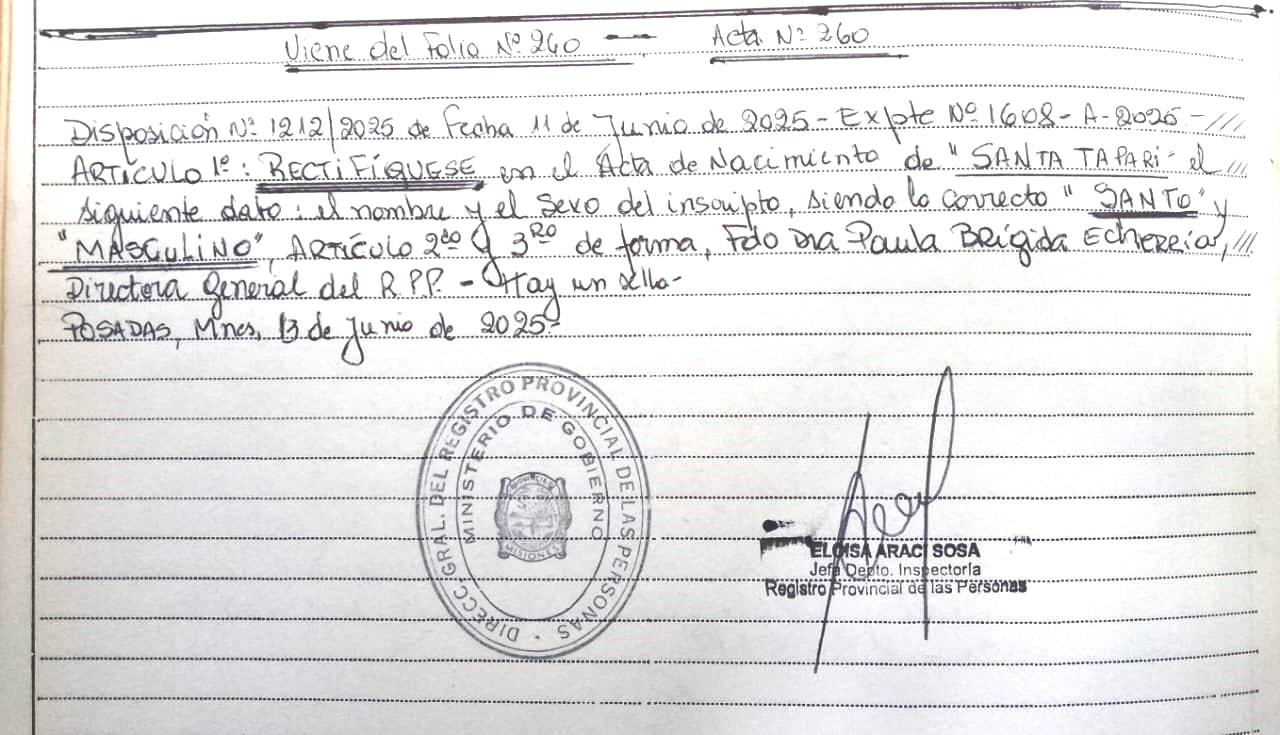 Viene del Folio Nº 260 — Acta Nº 260
Disposición Nº 1212/2025 de Fecha 11 de Junio de 2025 - Expte Nº 1608 - A - 2025 - ///
ARTÍCULO 1º: RECTIFÍQUESE en el Acta de Nacimiento de "SANTA TAPARI" el ///
siguiente dato: el nombre y el sexo del inscripto, siendo lo correcto "SANTO" y
"MASCULINO", ARTÍCULO 2do y 3RO de forma, Fdo Dra Paula Brígida Echerría, ///
Directora General del R.P.P. - Hay un sello-
POSADAS, Mnes, 13 de Junio de 2025-
DIRECC. GRAL. DEL REGISTRO PROVINCIAL DE LAS PERSONAS
MINISTERIO DE GOBIERNO
MISIONES
ELOISA ARACI SOSA
Jefa Depto. Inspectoría
Registro Provincial de las Personas